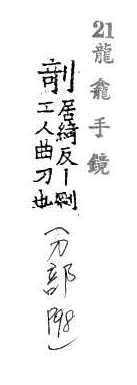 21龍龕手鏡
剞居綺反丨劂
工人曲刀也
(刀部 P98)